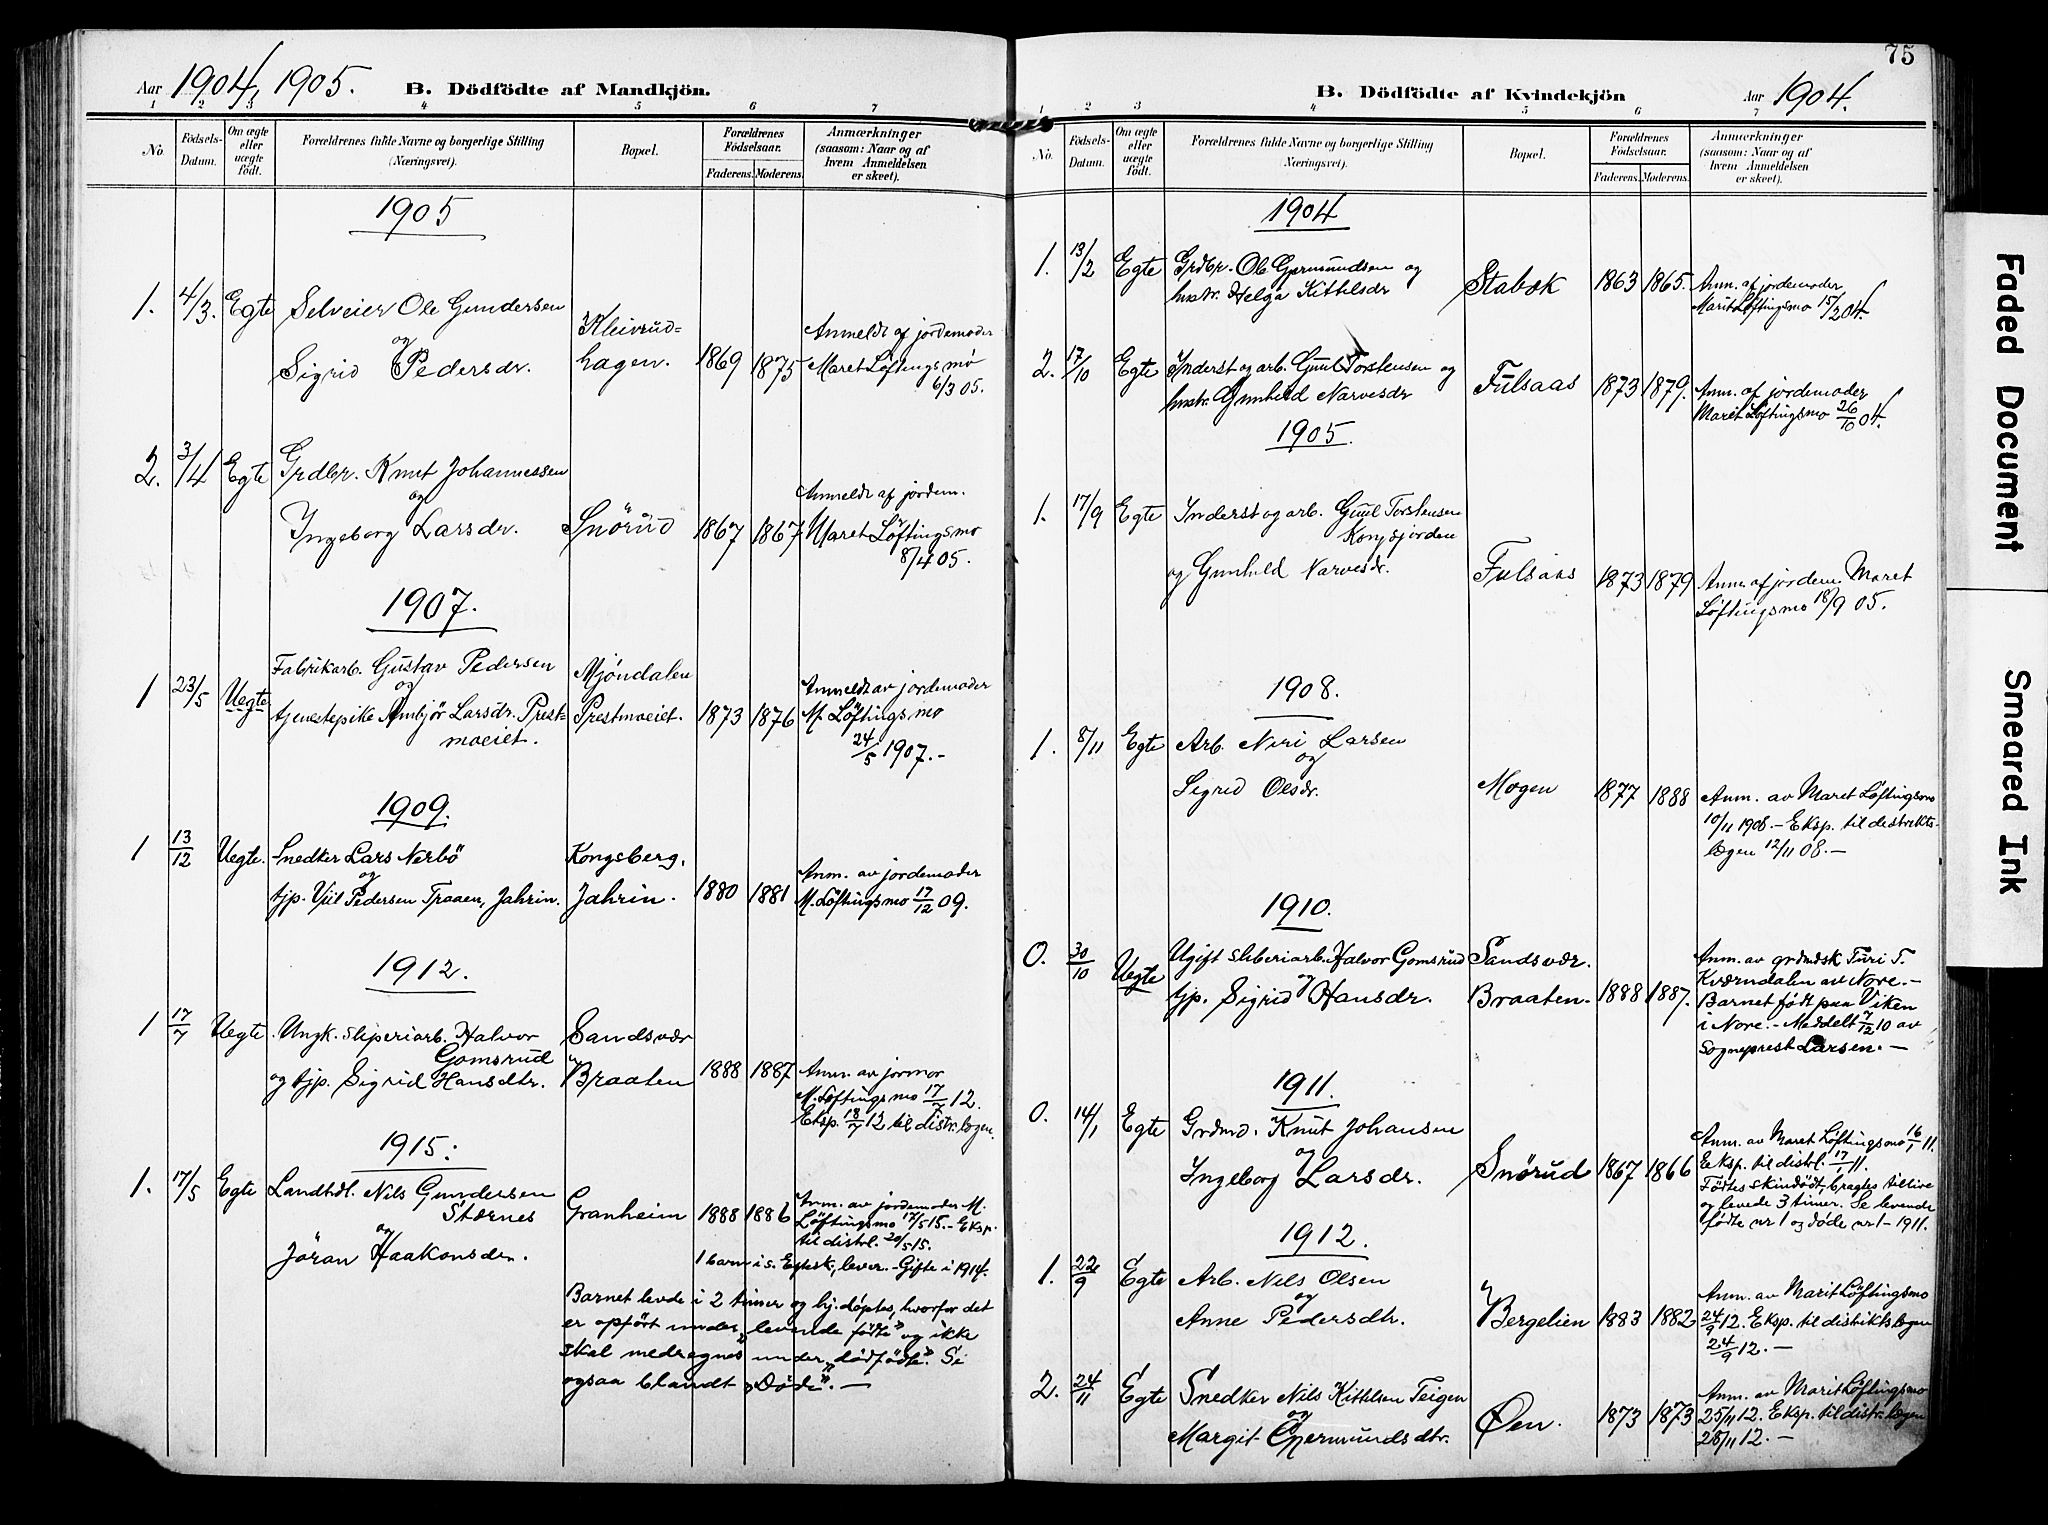 Aar 1904, 1905. B. Dödfödte af Mandkjön.
1 2 3 4 5 6 7
No. Födsels-Datum. Om ægte eller uægte födt. Forældrenes fulde Navne og borgerlige Stilling (Næringsvei). Bopæl. Forældrenes Födselsaar. Faderens. Moderens. Anmærkninger (saasom: Naar og af hvem Anmeldelsen er skeet).
1905
1. 4/3. Egte Selveier Ole Gundersen
og
Sigrid Pedersdr.
Kleivrud-
hagen. 1869 1875
Anmeldt af jordemoder
Maret Løftingsmo
6/3 05.
2. 3/4 Egte Grdbr. Knut Johannessen
og
Ingeborg Larsdr. Snörud 1867 1867
Anmeldt af jordem.
Maret Løftingsmo
8/4 05.
1907.
1 23/5 Uegte Fabrikarb. Gustav Pedersen
og
tjenestepike Ambjör Larsdr. Prest-
moeiet.
Mjöndalen
Prestmoeiet. 1873 1876
Anmeldt av jordemoder
M. Løftingsmo
24/5 1907.-
1909.
1 13/12 Uegte. Snedker Lars Nerbö
og
tjp. Vjil Pedersen Traaen, Jahrin.
Kongsberg.
Jahrin. 1880 1881
Anm. av jordemoder
M. Løftingsmo 17/12 09.
1912.
1 17/7 Uegte. Ungk. sliperiarb. Halvor
Gomsrud
og tjp. Sigrid Hansdtr.
Sandsvær
Braaten 1888 1887
Anm. av jormor
M. Løftingsmo 17/7 12.
Eksp. 18/7 12 til distr.lægen.
1915:
1. 17/5 Egte Landhdl. Nils Gundersen
Stærnes
og
Jöran Haakonsdn.
Granheim 1888 1886
Anm. av jordemoder M.
Løftingsmo 17/5 15.- Eksp.
til distrl. 20/5 15.
1 barn i s. Egtesk, lever. - Gifte i 1914.
Barnet levde i 2 timer og hj.döptes, hvorfor det
er opfört under „levende födte" og ikke
skal medregnes under „dödfödte". Se
ogsaa blandt „Döde". -
75
B. Dödfödte af Kvindekjön Aar 1904.
1 2 3 4 5 6 7
No. Födsels-Datum. Om ægte eller uægte födt. Forældrenes fulde Navne og borgerlige Stilling (Næringsvei). Bopæl. Forældrenes Födselsaar. Faderens. Moderens. Anmærkninger (saasom: Naar og af hvem Anmeldelsen er skeet).
1904
1. 13/2 Egte Grdbr. Ole Germundsen og
hustr. Helga Kittilsdr
Stabæk 1863 1865.
Anm. af jordemoder
Marit Løftingsmo 15/2 04.
2. 17/10 Egte Inderst og arb. Guul Torstensen og
hustr. Gunhild Narvesdr
Fulsaas 1873 1879.
Anm. af jordemoder
Marit Løftingsmo 26/10 04.
1905.
1. 17/9 Egte Inderst og arb. Guul Torstensen
Kongsjorden
og Gunhild Narvesdr.
Fulsaas 1873 1879
Anm. af jordem. Maret
Løftingsmo 18/9 05.
1908.
1. 8/11 Egte Arb. Neri Larsen
og
Sigrid Olsdr.
Mogen 1877 1888
Anm. av Maret Løftingsmo
10/11 1908.- Eksp. til distrikts-
lægen 12/11 08.-
1910.
0. 30/10 Uegte Ugift sliberiarb. Halvor Gomsrud
og
tjp. Sigrid Hansdr.
Sandsvær.
Braaten. 1888 1887.
Anm. av grdmdsk Turi T.
Kværndalen av Nore.-
Barnet født paa Viken
i Nore.- Meddelt 7/12 10 av
Sogneprest Larsen.-
1911.
0. 14/1 Egte Grdmd. Knut Johansen
og
Ingeborg Larsdr.
Snörud 1867 1866
Anm. av Maret Løftingsmo 16/1 11.
Eksp. til distrl. 17/1 11.
Födtes skindödt, bragtes tillive
og levede 3 timer. Se levende
födte nr 1 og döde nr 1 - 1911.
1912.
1. 22/9 Egte Arb. Nils Olsen
og
Anne Pedersdtr.
Bergelien 1883 1882
Anm. av Marit Løftingsmo
24/9 12. Eksp. til distriktslægen
24/9 12.-
2. 24/11 Egte Snedker Nils Kittelsen Teigen
og
Margit Germundsdtr.
Øen. 1873 1873
Anm. av Marit Løftingsmo
25/11 12. Eksp. til distr.lægen
25/11 12.-
Faded Document
Smeared Ink